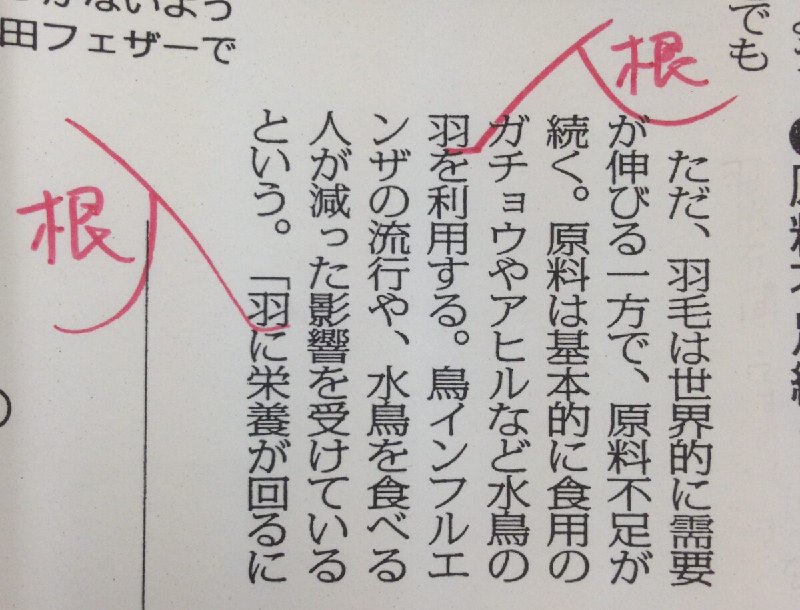 でも
根
ただ、羽毛は世界的に需要
が伸びる一方で、原料不足が
続く。原料は基本的に食用の
ガチョウやアヒルなど水鳥の
羽を利用する。鳥インフルエ
ンザの流行や、水鳥を食べる
人が減った影響を受けている
という。「羽に栄養が回るに
根
ないよう
田フェザーで